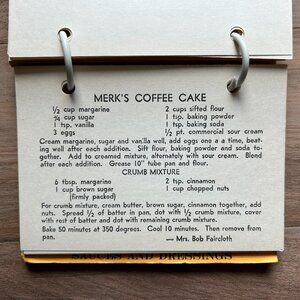 MERK'S COFFEE CAKE
½ cup margarine
¾ cup sugar
1 tsp. vanilla
3 eggs
2 cups sifted flour
1 tsp. baking powder
1 tsp. baking soda
½ pt. commercial sour cream
Cream margarine, sugar and vanilla well, add eggs one a a time, beat-
ing well after each addition. Sift flour, baking powder and soda to-
gether. Add to creamed mixture, alternately with sour cream. Blend
after each addition. Grease 10" tube pan and flour.
CRUMB MIXTURE
6 tbsp. margarine
1 cup brown sugar
(firmly packed)
2 tsp. cinnamon
1 cup chopped nuts
For crumb mixture, cream butter, brown sugar, cinnamon together, add
nuts. Spread ½ of batter in pan, dot with ½ crumb mixture, cover
with rest of batter and dot with remaining crumb mixture.
Bake 50 minutes at 350 degrees. Cool 10 minutes. Then remove from
pan.
— Mrs. Bob Faircloth
SAUCES AND DRESSINGS